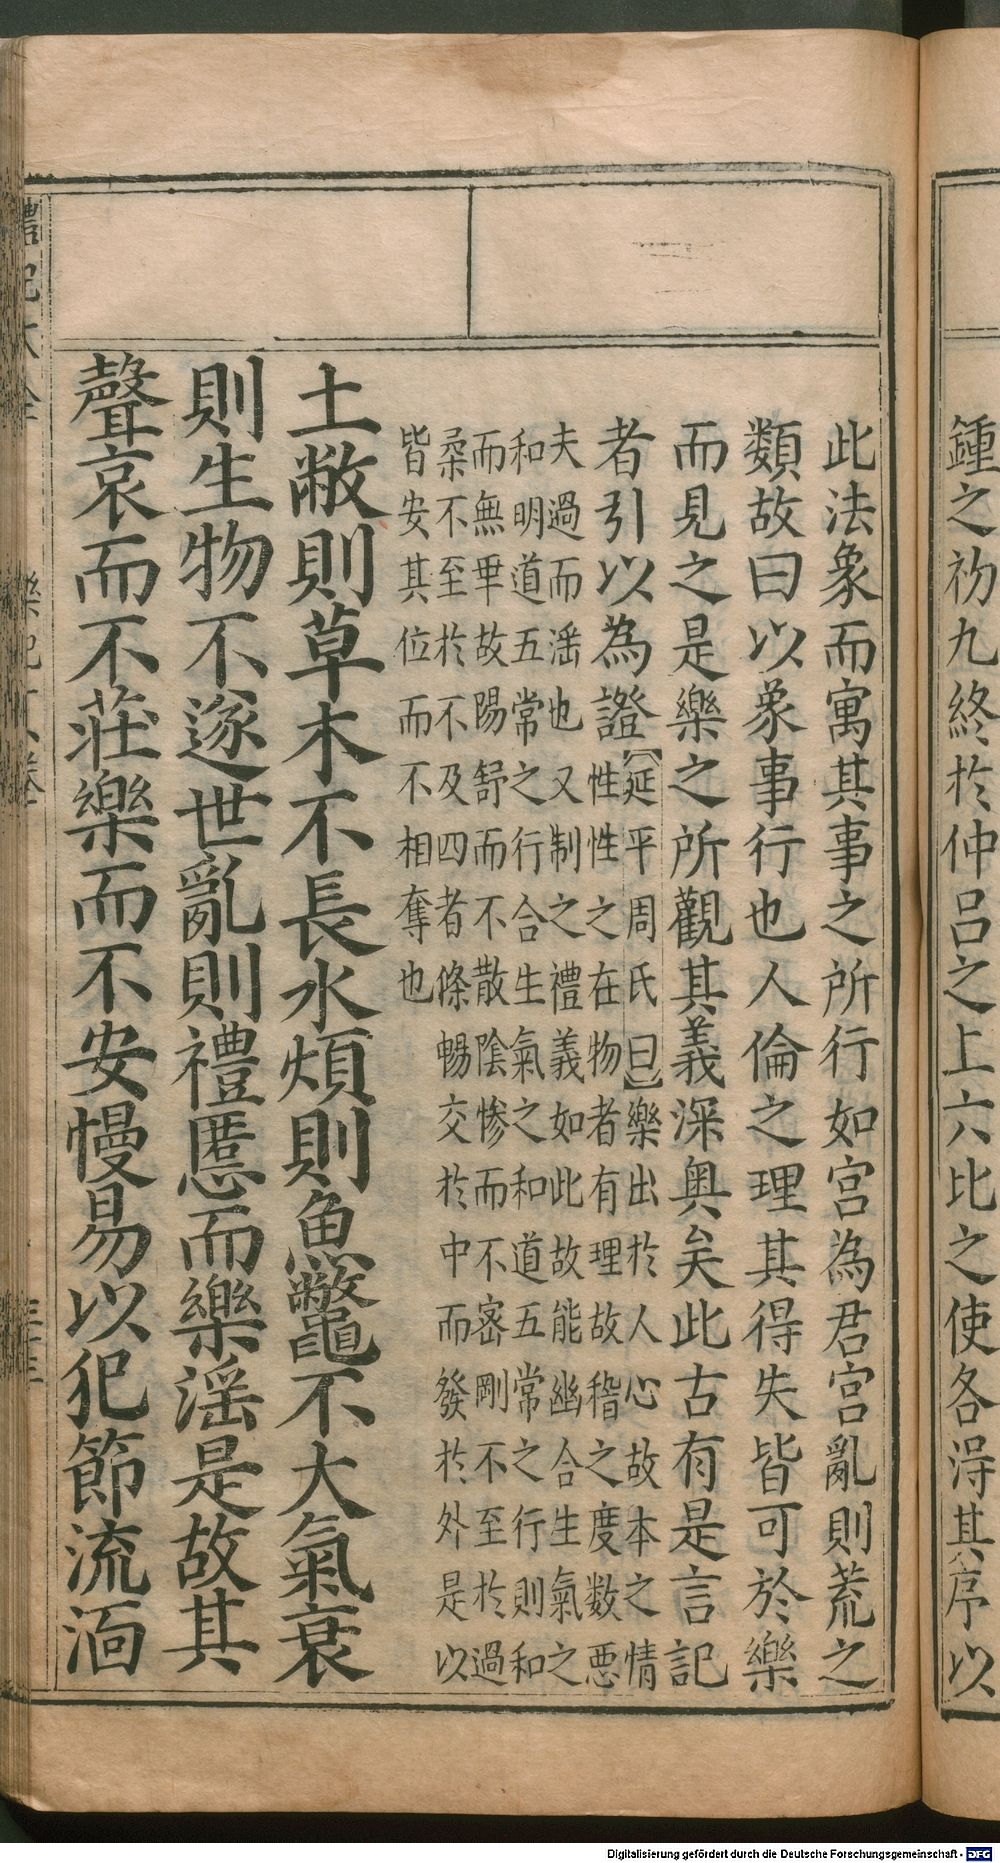 鍾之初九終於仲呂之上六比之使各得其序以
此法象而寓其事之所行如宮為君宮亂則荒之
類故曰以象事行也人倫之理其得失皆可於樂
而見之是樂之所觀其義深奥矣此古有是言記
者引以為證【延平周氏曰】樂出於人心故本之情
性性之在物者有理故稽之度數惡
夫過而滛也又制之禮義如此故能幽合生氣之
和明道五常之行合生氣之和道五常之行則和
而無乖故陽舒而不散陰慘而不密剛不至於過
柔不至於不及四者條暢交於中而發於外是以
皆安其位而不相奪也
土敝則草木不長水煩則魚鼈不大氣衰
則生物不遂世亂則禮慝而樂滛是故其
聲哀而不莊樂而不安慢易以犯節流湎
禮記大全
樂記十八卷
三十三
Digitalisierung gefördert durch die Deutsche Forschungsgemeinschaft - DFG